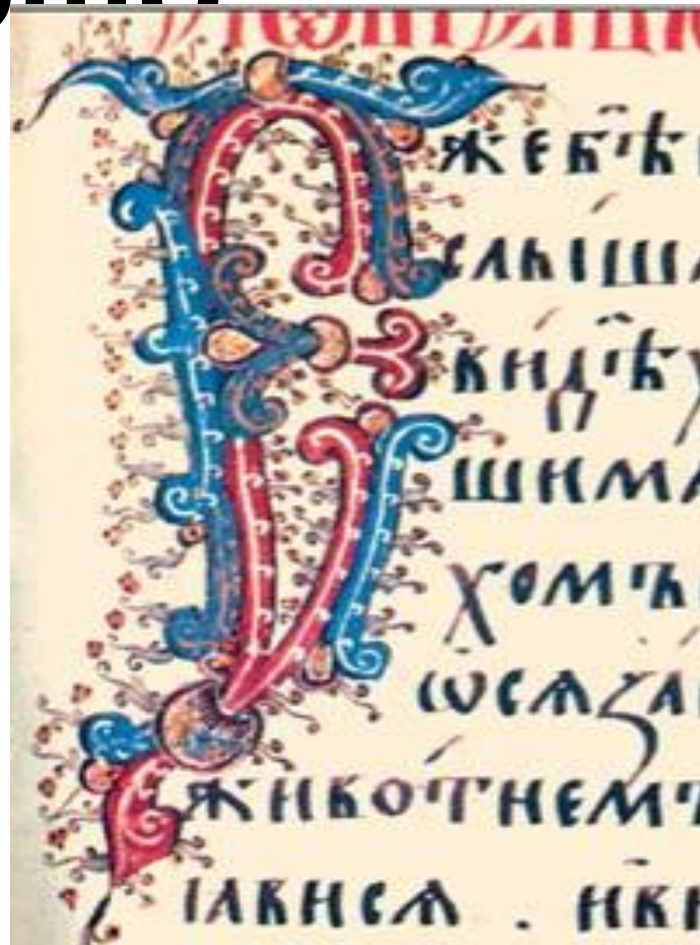 Єже бѣ
слыша
видѣх
шима
хомъ
ѡсѧза
животнемъ
ꙗвисѧ . и в